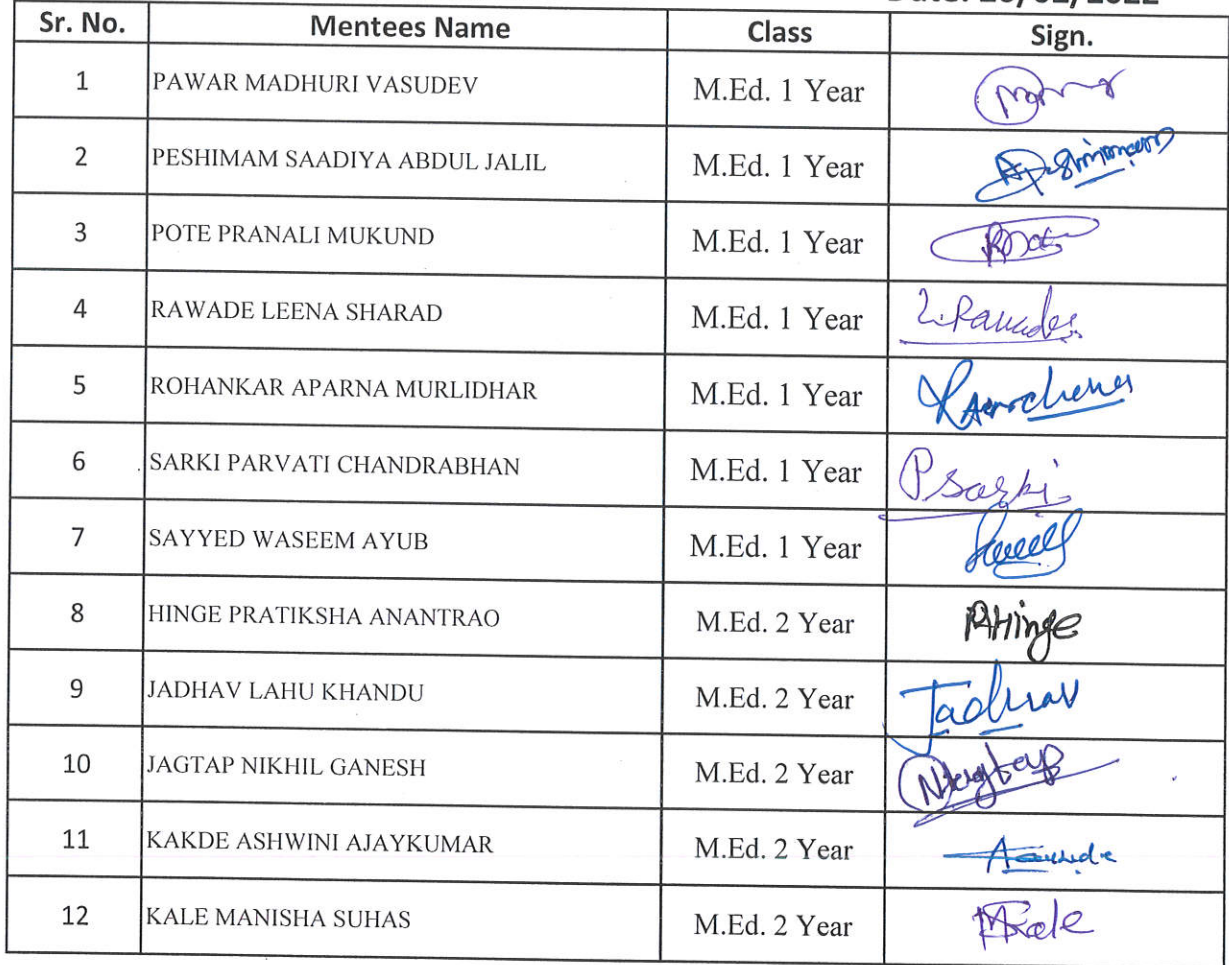 Sr. No. Mentees Name Class Sign.
1 PAWAR MADHURI VASUDEV M.Ed. 1 Year
2 PESHIMAM SAADIYA ABDUL JALIL M.Ed. 1 Year
3 POTE PRANALI MUKUND M.Ed. 1 Year
4 RAWADE LEENA SHARAD M.Ed. 1 Year
5 ROHANKAR APARNA MURLIDHAR M.Ed. 1 Year
6 SARKI PARVATI CHANDRABHAN M.Ed. 1 Year Psarki
7 SAYYED WASEEM AYUB M.Ed. 1 Year
8 HINGE PRATIKSHA ANANTRAO M.Ed. 2 Year PAHinge
9 JADHAV LAHU KHANDU M.Ed. 2 Year Jadhav
10 JAGTAP NIKHIL GANESH M.Ed. 2 Year NJagtap
11 KAKDE ASHWINI AJAYKUMAR M.Ed. 2 Year
12 KALE MANISHA SUHAS M.Ed. 2 Year